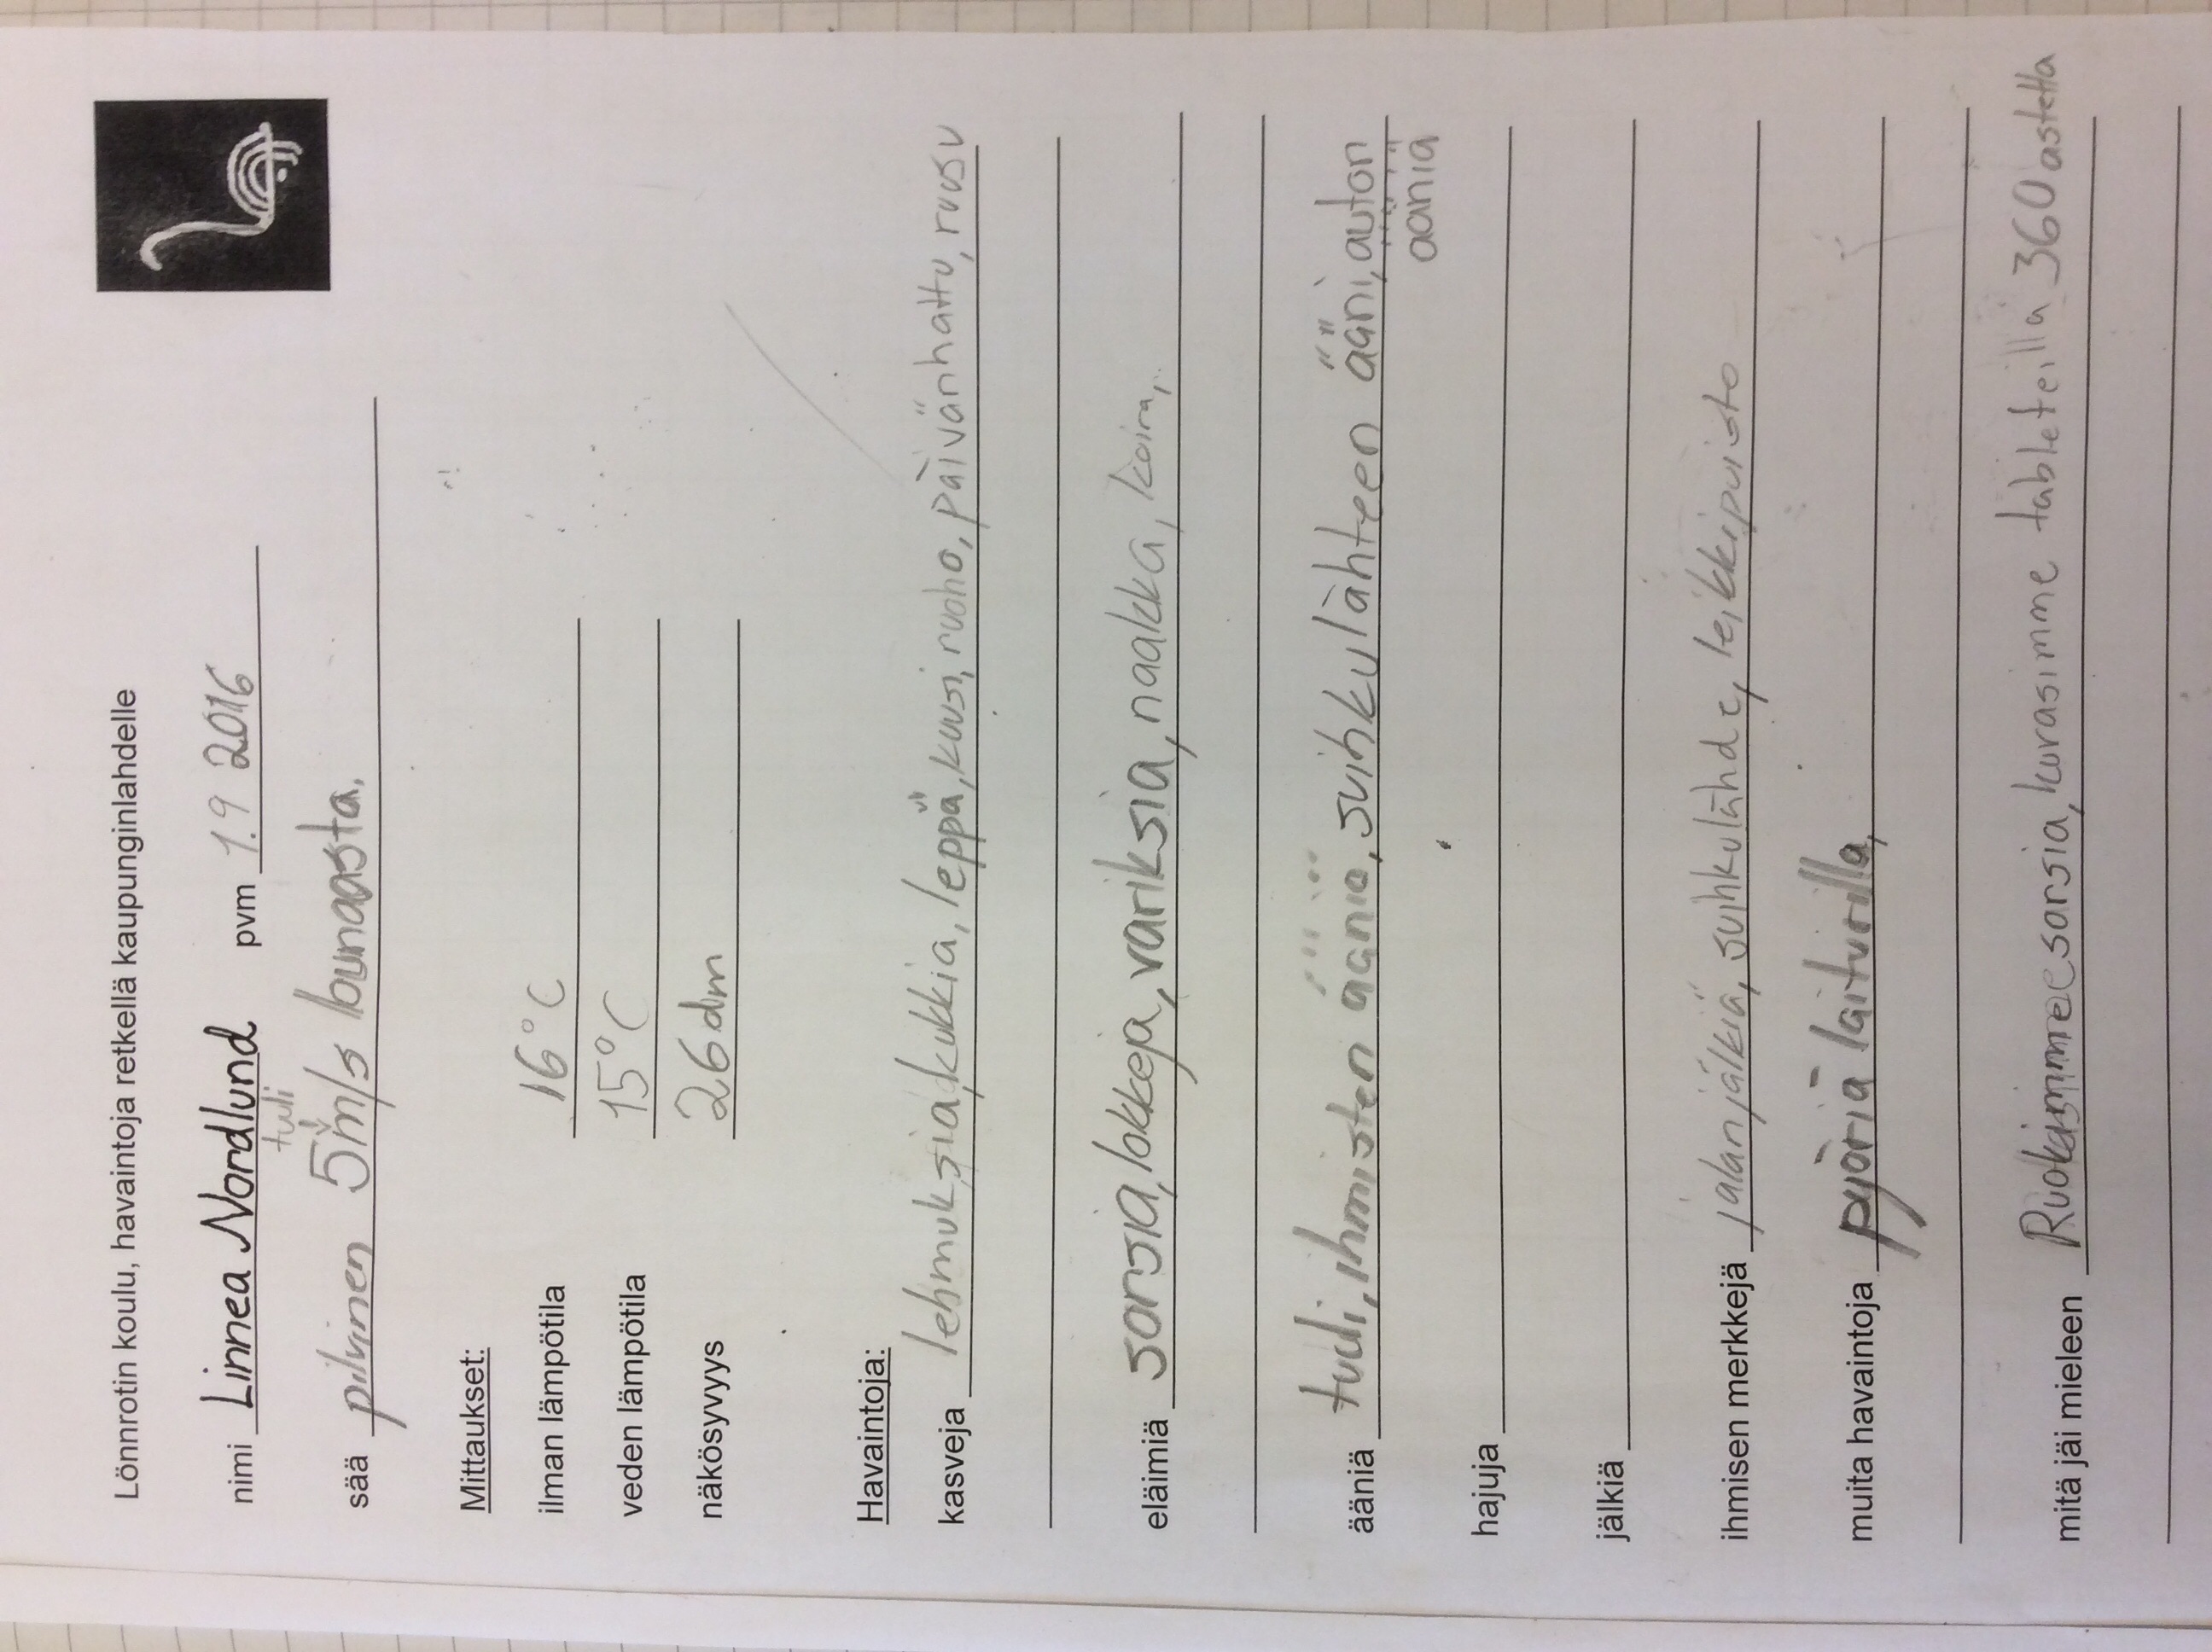 Lönnrotin koulu, havaintoja retkellä kaupunginlahdelle
nimi Linnea Nordlund pvm 1.9 2016
tuuli
sää pilvinen 5m/s lounaasta.
Mittaukset:
ilman lämpötila 16°C
veden lämpötila 15°C
näkösyvyys 26dm
Havaintoja:
kasveja lehmuksia, kukkia, leppä, kuusi, ruoho, päivänhattu, ruusu
eläimiä sorsia, lokkeja, variksia, naakka, koira,
ääniä tuuli, ihmisten ääniä, suihkulähteen ääni, auton
ääniä
hajuja
jälkiä
ihmisen merkkejä jalanjälkiä, suihkulähde, leikkipuisto
muita havaintoja pyöriä laiturilla,
mitä jäi mieleen Ruokimme sorsia, kuvasimme tableteilla 360 astetta